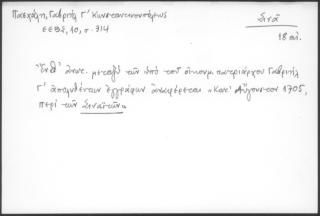 Πασχάλη, Γαβριήλ Γ' Κωνσταντινουπόλεως
ΕΕΒΣ, 10, σ. 314
Σινᾶ
18 αἰ.
μεταξὺ τῶν ὑπὸ τοῦ οἰκουμ. πατριάρχου Γαβριὴλ
Γ' ἀπολυθέντων ἐγγράφων ἀναφέρεται "Κατ' Αὔγουστον 1705,
περὶ τῶν Σιναϊτῶν"